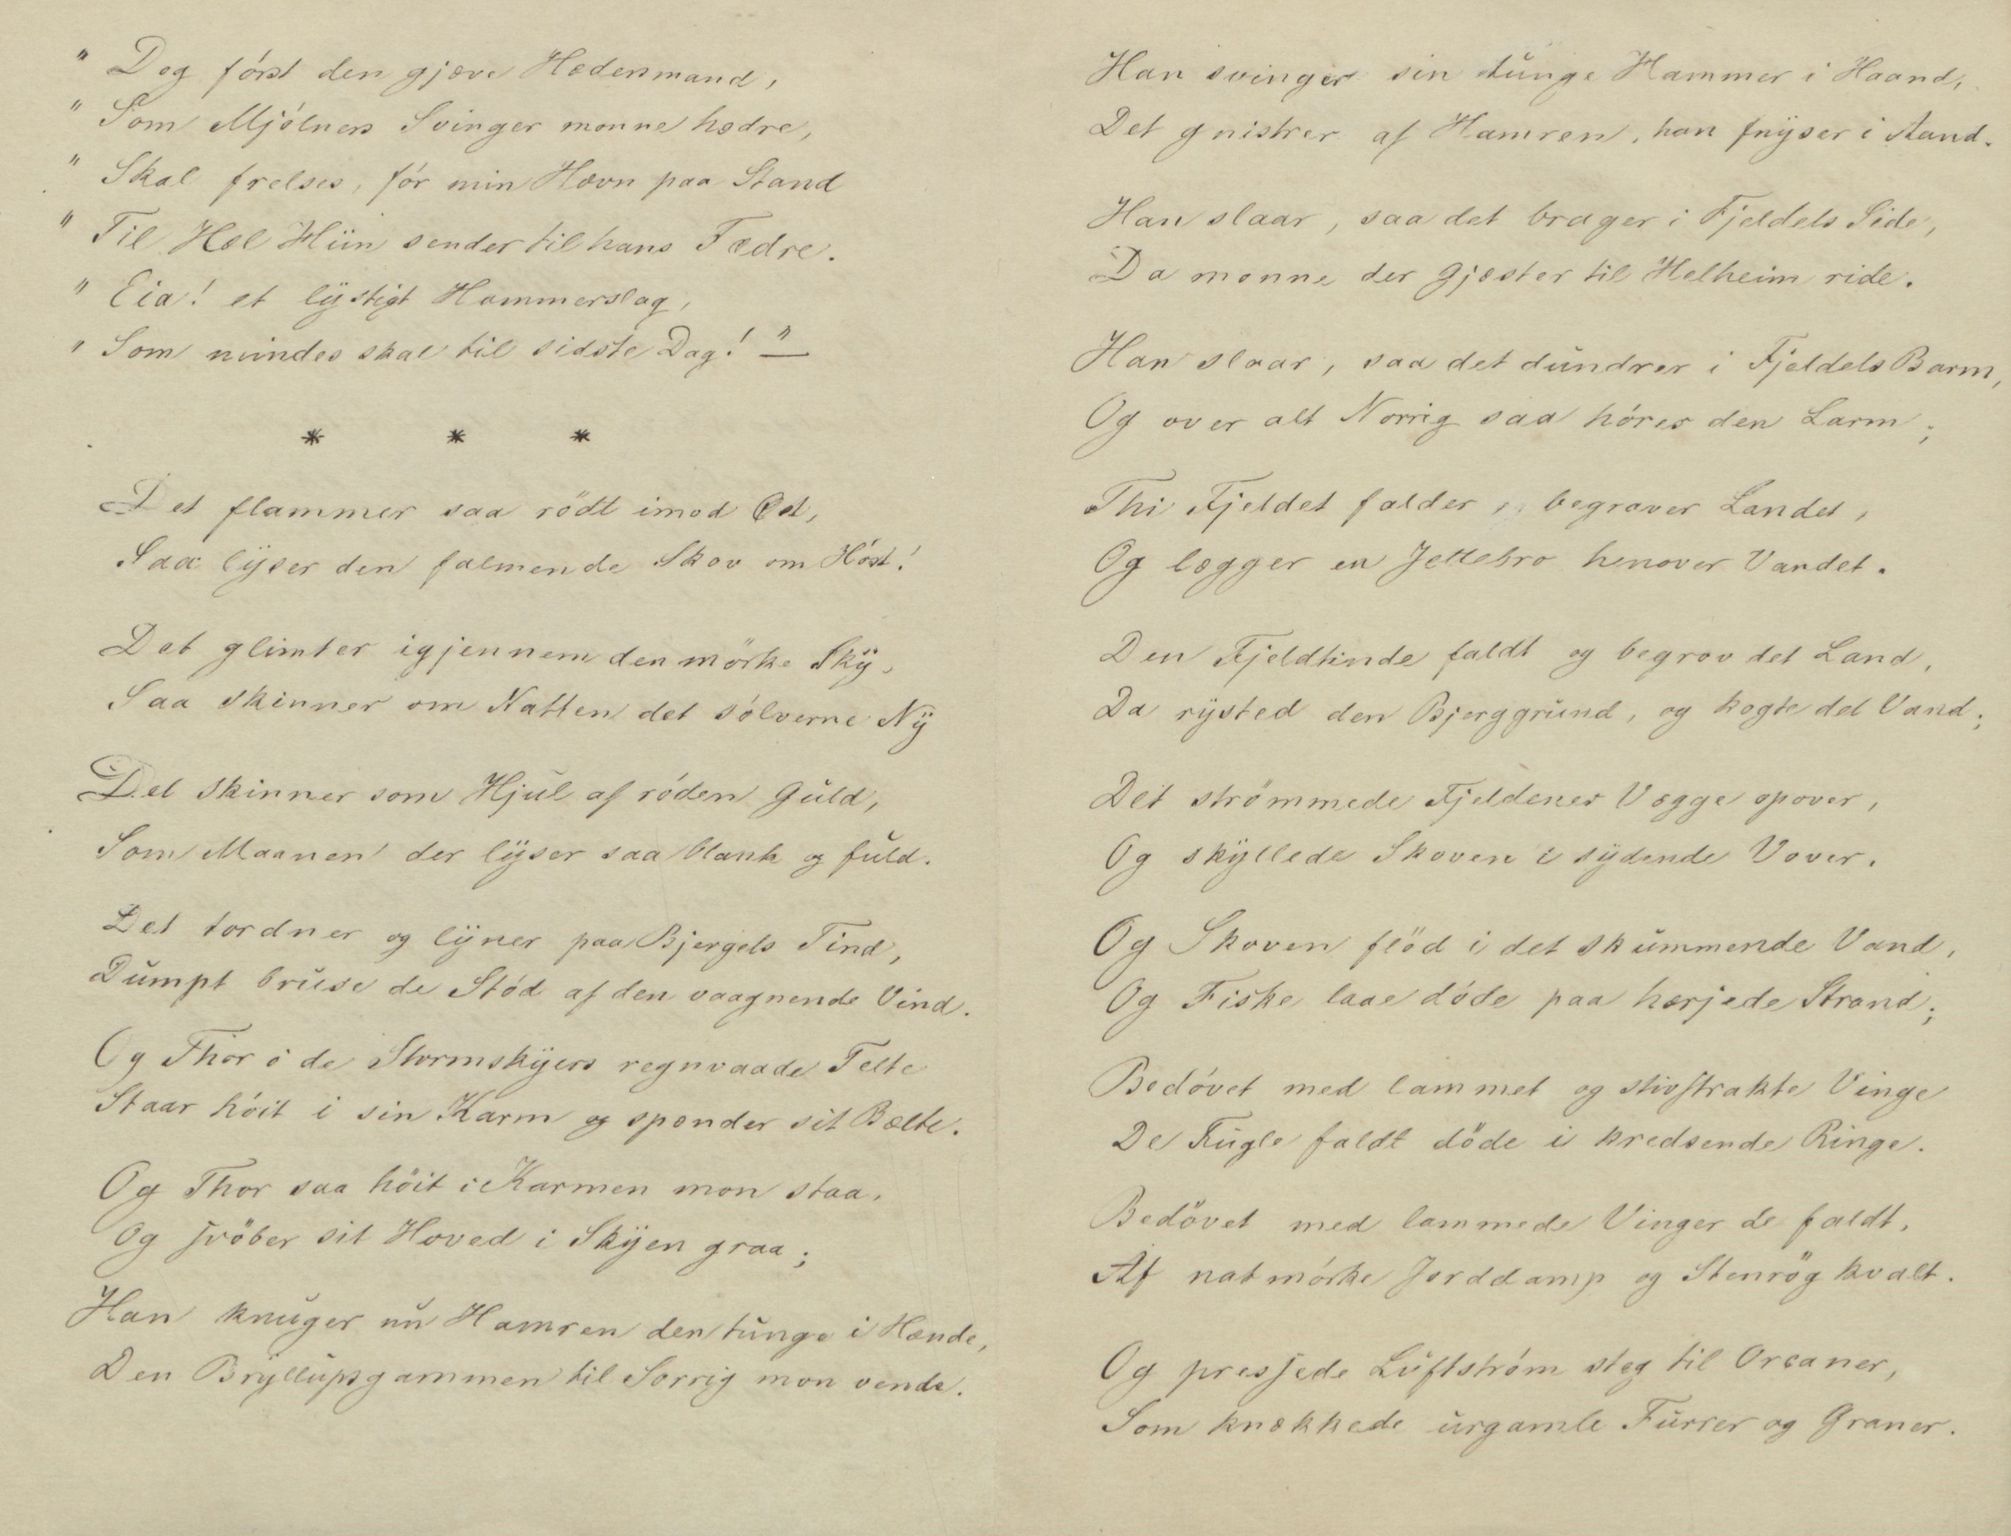 " Dog först den gjæve Hædersmand,
" Som Mjölners Svinger monne hædre,
" Skal frelses, för min Hævn paa Stand
" Til Hel Hiin sender til hans Fædre.
" Eia! et lÿstigt Hammerslag,
" Som mindes skal til sidste Dag! " —
* * *
Det flammer saa rödt imod Öst,
Saa lÿser den falmende Skov om Höst!
Det glimter igjennem den mörke Skÿ,
Saa skinner om Natten det sölverne Nÿ
Det skinner som Hjul af röden Guld,
Som Maanen der lÿser saa blank og fuld.
Det tordner og lÿner paa Bjergets Tind,
Dumpt bruse de Stöd af den vaagnende Vind.
Og Thor i de Stormskÿers regnvaade Telte
Staar höit i sin Karm og spænder sit Bælte.
Og Thor saa höit i Karmen mon staa,
Og svöber sit Hoved i Skÿen graa;
Han knuger nu Hamren den tunge i Hænde,
Den Brÿllupsgammen til Sorrig mon vende.
Han svinger sin tunge Hammer i Haand,
Det gnistrer af Hamren, han fnÿser i Aand.
Han slaar, saa det brager i Fjeldets Side,
Da monne der Gjæster til Helheim ride.
Han slaar, saa det dundrer i Fjeldets Barm,
Og over alt Norrig saa höres den Larm;
Thi Fjeldet falder, begraver Landet,
Og lægger en Jettebro henover Vandet.
Den Fjeldtinde faldt og begrov det Land,
Da rÿsted den Bjerggrund, og kogte det Vand;
Det strömmede Fjeldenes Vægge opover,
Og skÿllede Skoven i sÿdende Vover.
Og Skoven flöd i det skummende Vand,
Og Fiske laae döde paa hærjede Strand;
Bedövet med lammet og stivstrakte Vinge
De Fugle faldt döde i kredsende Ringe.
Bedövet med lammede Vinger de faldt,
Af natmörke Jorddamp og Stenrög kvalt.
Og pressede Luftström steg til Orcaner,
Som knækkede urgamle Furrer og Graner.